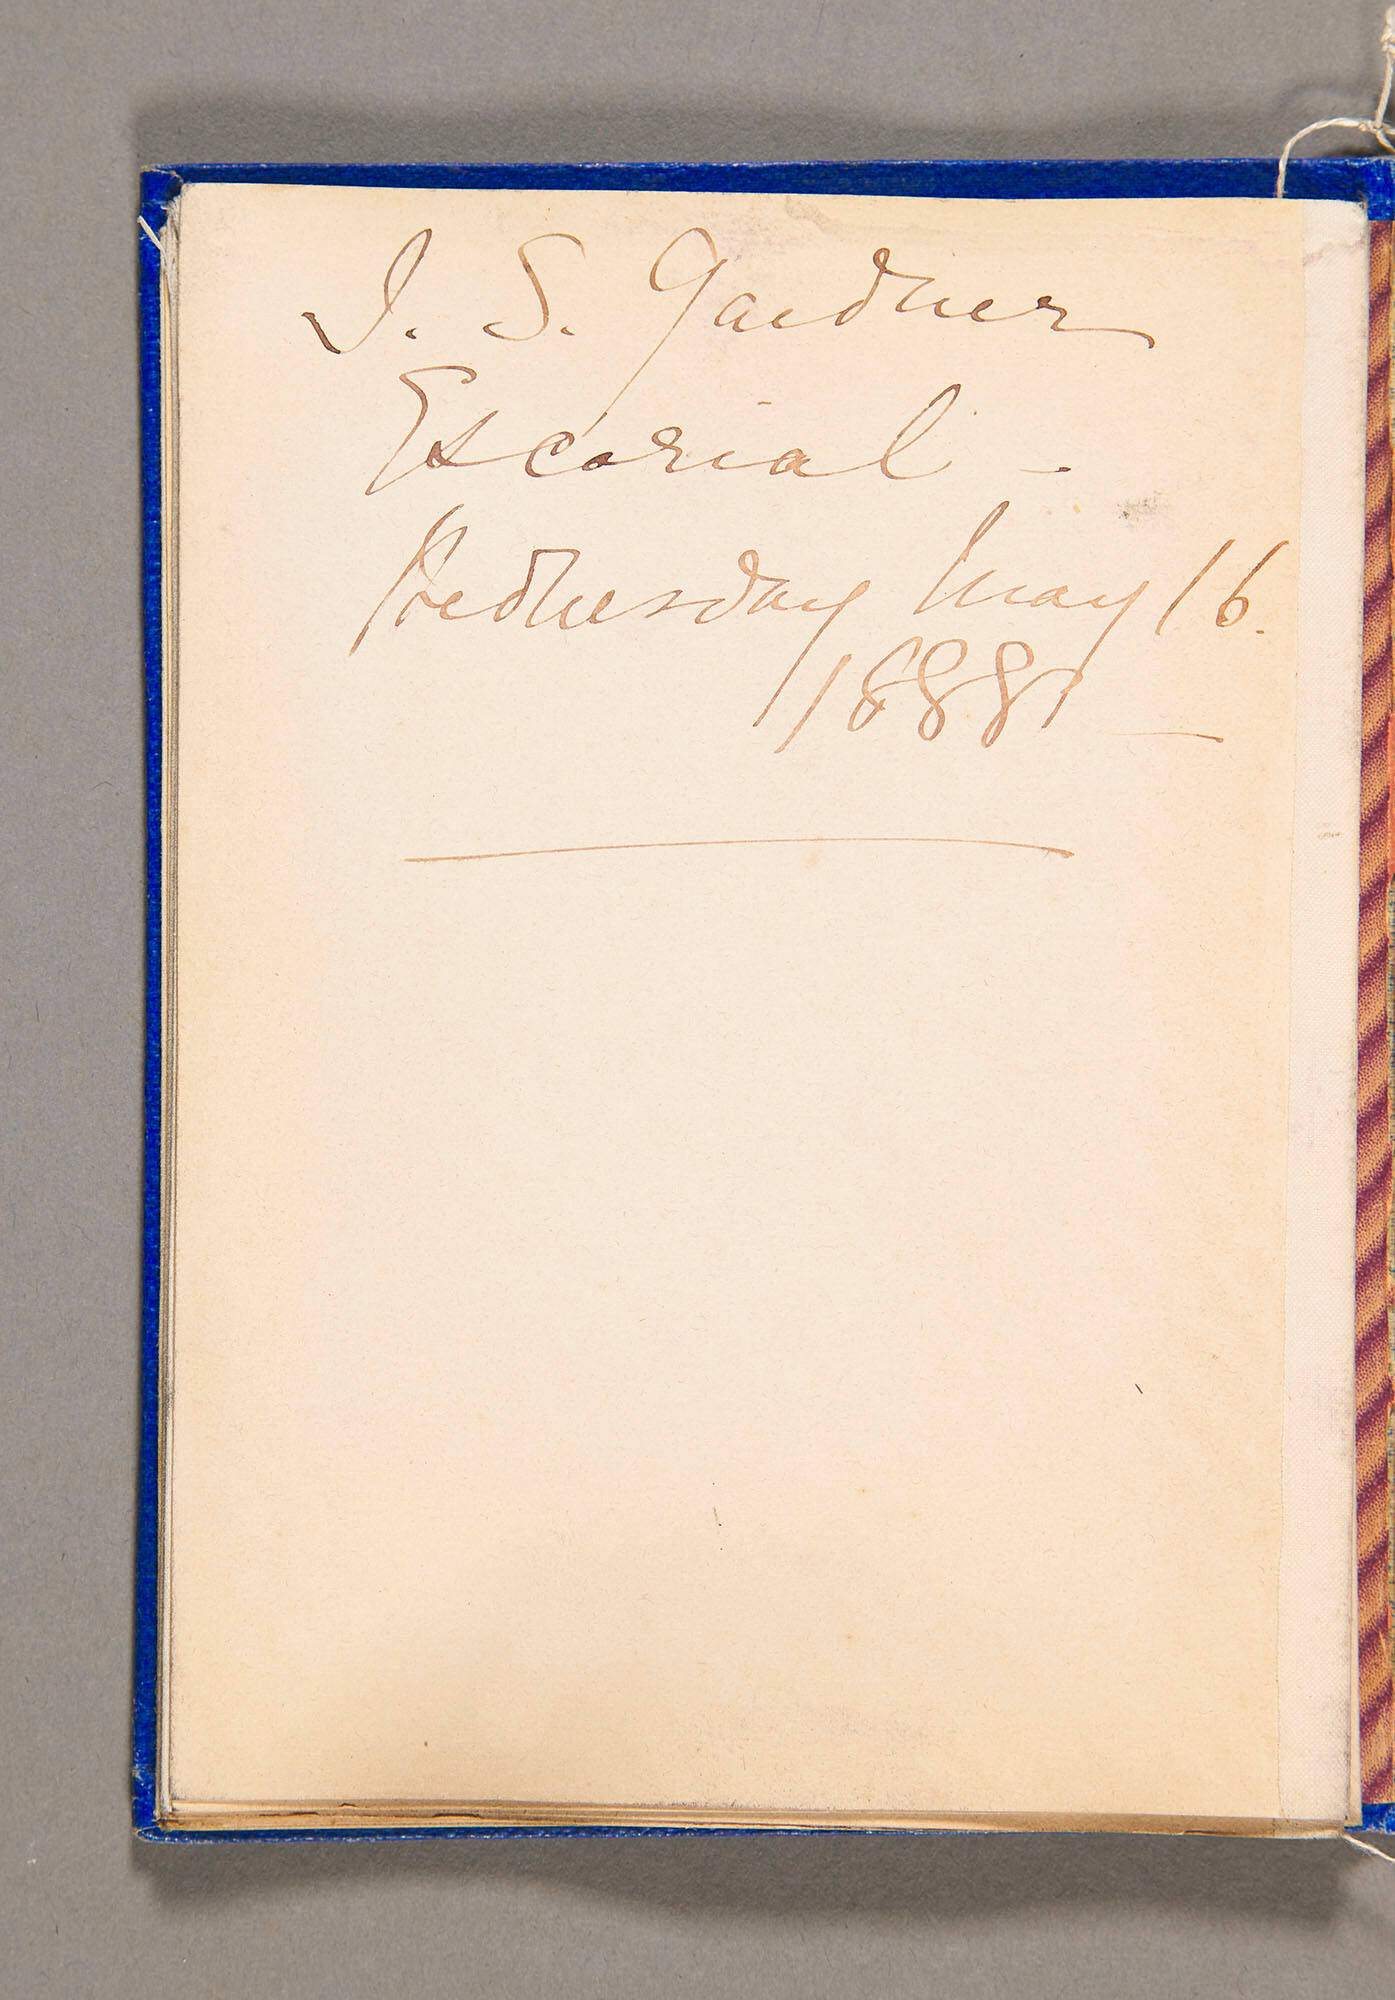 I. S. Gardner
Escorial -
Wednesday May 16.
1888 -